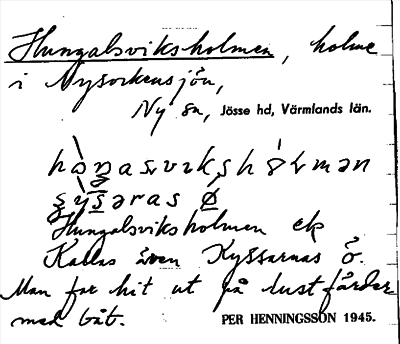 Hungalsviksholmen, holme
i Nysockensjön,
Ny sn, Jösse hd, Värmlands län.
Hungalsviksholmen ek
Kallas även Kyssarnas ö.
Man far hit ut på lustfärder
med båt. PER HENNINGSSON 1945.